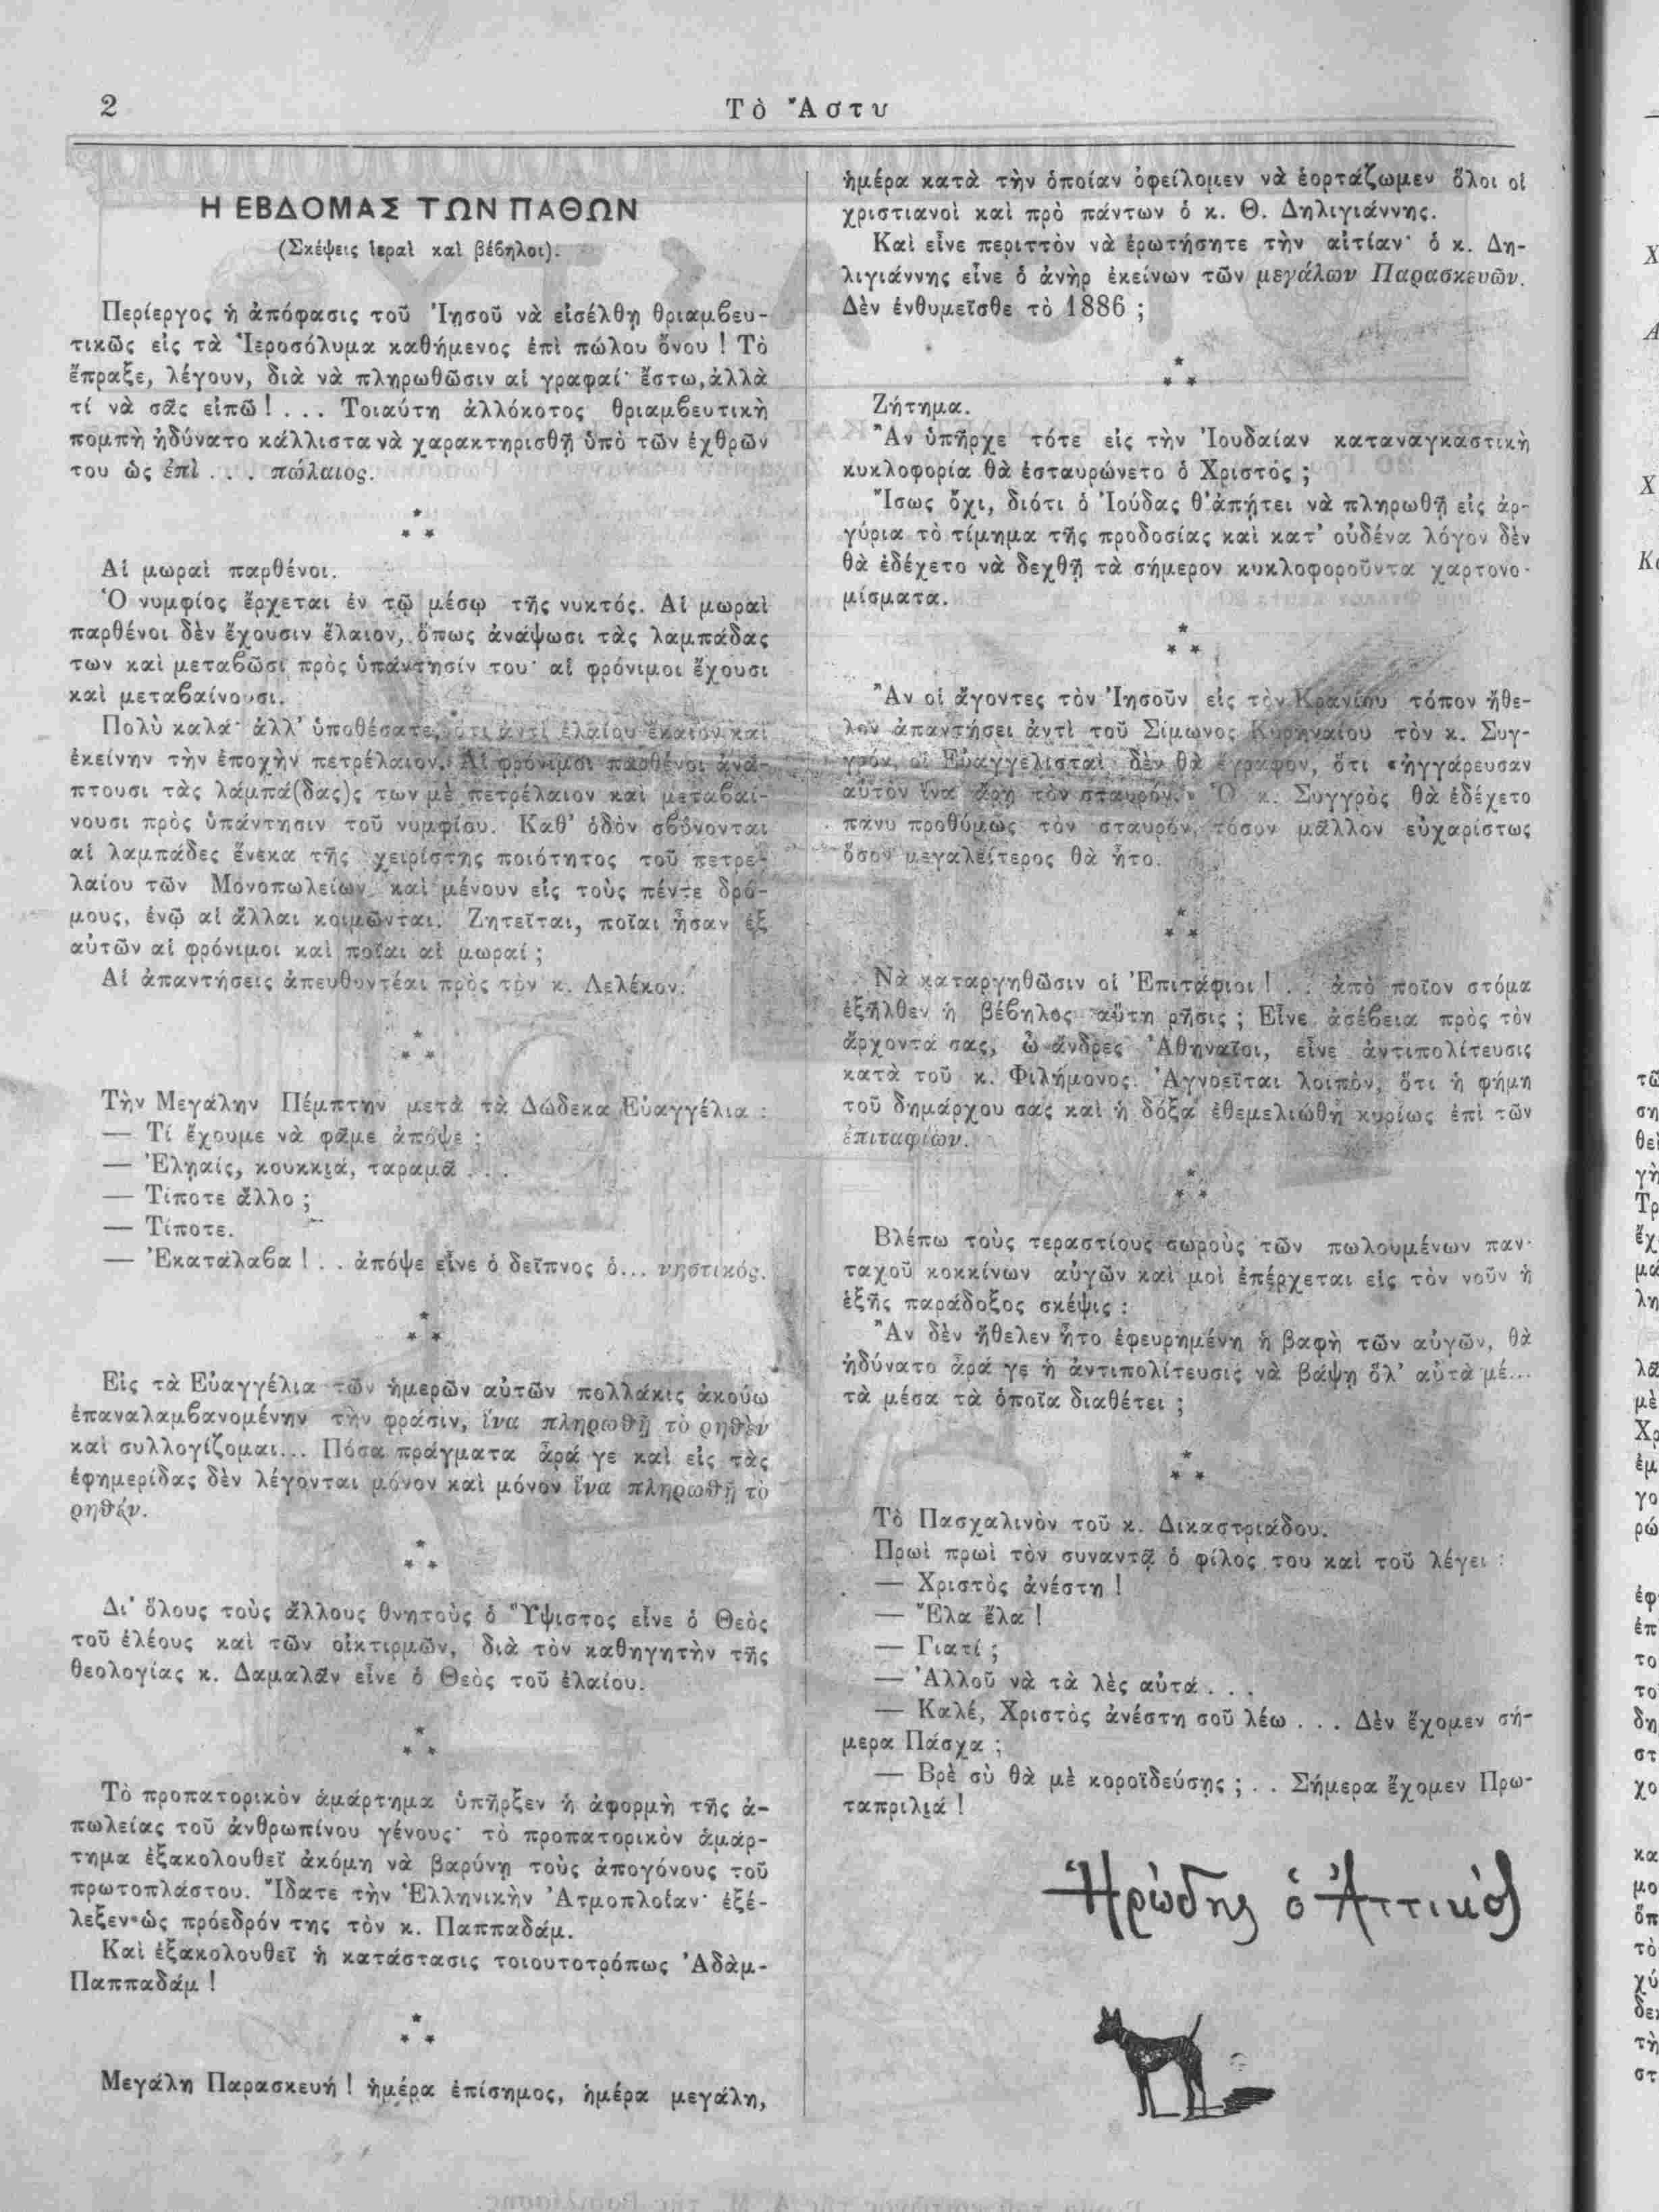 2
Τὸ Ἄστυ
Η ΕΒΔΟΜΑΣ ΤΩΝ ΠΑΘΩΝ
(Σκέψεις ἱεραὶ καὶ βέβηλοι).
Περίεργος ἡ ἀπόφασις τοῦ Ἰησοῦ νὰ εἰσέλθῃ θριαμβευ-
τικῶς εἰς τὰ Ἱεροσόλυμα καθήμενος ἐπὶ πώλου ὄνου! Τὸ
ἔπραξε, λέγουν, διὰ νὰ πληρωθῶσιν αἱ γραφαί· ἔστω, ἀλλὰ
τί νὰ σᾶς εἰπῶ!... Τοιαύτη ἀλλόκοτος θριαμβευτικὴ
πομπὴ ἠδύνατο κάλλιστα νὰ χαρακτηρισθῇ ὑπὸ τῶν ἐχθρῶν
του ὡς ἐπὶ... πώλαιος.
* * *
Αἱ μωραὶ παρθένοι.
Ὁ νυμφίος ἔρχεται ἐν τῷ μέσῳ τῆς νυκτός. Αἱ μωραὶ
παρθένοι δὲν ἔχουσιν ἔλαιον, ὅπως ἀνάψωσι τὰς λαμπάδας
των καὶ μεταβῶσι πρὸς ὑπάντησίν του· αἱ φρόνιμοι ἔχουσι
καὶ μεταβαίνουσι.
Πολὺ καλά· ἀλλ' ὑποθέσατε, ὅτι ἀντὶ ἐλαίου ἔκαιον καὶ
ἐκείνην τὴν ἐποχὴν πετρέλαιον. Αἱ φρόνιμοι παρθένοι ἀνά-
πτουσι τὰς λάμπα(δας)ς των μὲ πετρέλαιον καὶ μεταβαί-
νουσι πρὸς ὑπάντησιν τοῦ νυμφίου. Καθ' ὁδὸν σβύνονται
αἱ λαμπάδες ἕνεκα τῆς χειρίστης ποιότητος τοῦ πετρε-
λαίου τῶν Μονοπωλείων καὶ μένουν εἰς τοὺς πέντε δρό-
μους, ἐνῷ αἱ ἄλλαι κοιμῶνται. Ζητεῖται, ποῖαι ἦσαν ἐξ
αὐτῶν αἱ φρόνιμοι καὶ ποῖαι αἱ μωραί;
Αἱ ἀπαντήσεις ἀπευθυντέαι πρὸς τὸν κ. Λελέκον.
* * *
Τὴν Μεγάλην Πέμπτην μετὰ τὰ Δώδεκα Εὐαγγέλια:
— Τί ἔχουμε νὰ φᾶμε ἀπόψε;
— Ἐληαίς, κουκκιά, ταραμᾶ...
— Τίποτε ἄλλο;
— Τίποτε.
— Ἐκατάλαβα!.. ἀπόψε εἶνε ὁ δεῖπνος ὁ... νηστικός.
* * *
Εἰς τὰ Εὐαγγέλια τῶν ἡμερῶν αὐτῶν πολλάκις ἀκούω
ἐπαναλαμβανομένην τὴν φράσιν, ἵνα πληρωθῇ τὸ ῥηθὲν
καὶ συλλογίζομαι... Πόσα πράγματα ἆρά γε καὶ εἰς τὰς
ἐφημερίδας δὲν λέγονται μόνον καὶ μόνον ἵνα πληρωθῇ τὸ
ρηθέν.
* * *
Δι' ὅλους τοὺς ἄλλους θνητοὺς ὁ Ὕψιστος εἶνε ὁ Θεὸς
τοῦ ἐλέους καὶ τῶν οἰκτιρμῶν, διὰ τὸν καθηγητὴν τῆς
θεολογίας κ. Δαμαλᾶν εἶνε ὁ Θεὸς τοῦ ἐλαίου.
* * *
Τὸ προπατορικὸν ἁμάρτημα ὑπῆρξεν ἡ ἀφορμὴ τῆς ἀ-
πωλείας τοῦ ἀνθρωπίνου γένους· τὸ προπατορικὸν ἁμάρ-
τημα ἐξακολουθεῖ ἀκόμη νὰ βαρύνῃ τοὺς ἀπογόνους τοῦ
πρωτοπλάστου. Ἴδατε τὴν Ἑλληνικὴν Ἀτμοπλοΐαν· ἐξέ-
λεξεν ὡς πρόεδρόν της τὸν κ. Παππαδάμ.
Καὶ ἐξακολουθεῖ ἡ κατάστασις τοιουτοτρόπως Ἀδὰμ-
Παππαδάμ!
* * *
Μεγάλη Παρασκευή! ἡμέρα ἐπίσημος, ἡμέρα μεγάλη,
ἡμέρα κατὰ τὴν ὁποίαν ὀφείλομεν νὰ ἑορτάζωμεν ὅλοι οἱ
χριστιανοὶ καὶ πρὸ πάντων ὁ κ. Θ. Δηλιγιάννης.
Καὶ εἶνε περιττὸν νὰ ἐρωτήσητε τὴν αἰτίαν· ὁ κ. Δη-
λιγιάννης εἶνε ὁ ἀνὴρ ἐκείνων τῶν μεγάλων Παρασκευῶν.
Δὲν ἐνθυμεῖσθε τὸ 1886;
* * *
Ζήτημα.
Ἂν ὑπῆρχε τότε εἰς τὴν Ἰουδαίαν καταναγκαστικὴ
κυκλοφορία θὰ ἐσταυρώνετο ὁ Χριστός;
Ἴσως ὄχι, διότι ὁ Ἰούδας θ' ἀπῄτει νὰ πληρωθῇ εἰς ἀρ-
γύρια τὸ τίμημα τῆς προδοσίας καὶ κατ' οὐδένα λόγον δὲν
θὰ ἐδέχετο νὰ δεχθῇ τὰ σήμερον κυκλοφοροῦντα χαρτονο-
μίσματα.
* * *
Ἂν οἱ ἄγοντες τὸν Ἰησοῦν εἰς τὸν Κρανίου τόπον ἤθε-
λον ἀπαντήσει ἀντὶ τοῦ Σίμωνος Κυρηναίου τὸν κ. Συγ-
γρόν, οἱ Εὐαγγελισταὶ δὲν θὰ ἔγραφον, ὅτι «ἠγγάρευσαν
αὐτὸν ἵνα ἄρῃ τὸν σταυρόν.» Ὁ κ. Συγγρὸς θὰ ἐδέχετο
πάνυ προθύμως τὸν σταυρόν, τόσον μᾶλλον εὐχαρίστως
ὅσον μεγαλείτερος θὰ ἦτο.
* * *
Νὰ καταργηθῶσιν οἱ Ἐπιτάφιοι!.. ἀπὸ ποῖον στόμα
ἐξῆλθεν ἡ βέβηλος αὕτη ρῆσις; Εἶνε ἀσέβεια πρὸς τὸν
ἄρχοντά σας, ὦ ἄνδρες Ἀθηναῖοι, εἶνε ἀντιπολίτευσις
κατὰ τοῦ κ. Φιλήμονος. Ἀγνοεῖται λοιπὸν, ὅτι ἡ φήμη
τοῦ δημάρχου σας καὶ ἡ δόξα ἐθεμελιώθη κυρίως ἐπὶ τῶν
ἐπιταφίων.
* * *
Βλέπω τοὺς τεραστίους σωροὺς τῶν πωλουμένων παν-
ταχοῦ κοκκίνων αὐγῶν καὶ μοὶ ἐπέρχεται εἰς τὸν νοῦν ἡ
ἑξῆς παράδοξος σκέψις:
Ἂν δὲν ἤθελεν ἦτο ἐφευρημένη ἡ βαφὴ τῶν αὐγῶν, θὰ
ἠδύνατο ἆρά γε ἡ ἀντιπολίτευσις νὰ βάψῃ ὅλ' αὐτὰ μέ...
τὰ μέσα τὰ ὁποῖα διαθέτει;
* * *
Τὸ Πασχαλινὸν τοῦ κ. Δικαστριάδου.
Πρωὶ πρωὶ τὸν συναντᾷ ὁ φίλος του καὶ τοῦ λέγει:
— Χριστὸς ἀνέστη!
— Ἔλα ἔλα!
— Γιατί;
— Ἀλλοῦ νὰ τὰ λὲς αὐτά...
— Καλέ, Χριστὸς ἀνέστη σοῦ λέω... Δὲν ἔχομεν σή-
μερα Πάσχα;
— Βρὲ σὺ θὰ μὲ κοροϊδεύσῃς;.. Σήμερα ἔχομεν Πρω-
ταπριλιά!
Ἡρώδης ὁ Ἀττικός